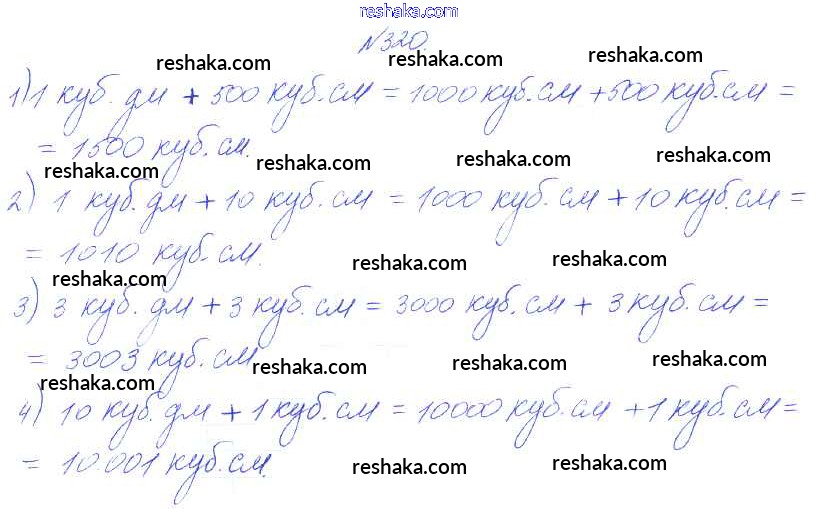 reshaka.com
№320.
reshaka.com reshaka.com reshaka.com
1) 1 куб. дм + 500 куб.см = 1000 куб.см + 500 куб.см =
= 1500 куб.см.
reshaka.com reshaka.com reshaka.com
2) 1 куб.дм + 10 куб.см = 1000 куб.см + 10 куб.см =
= 1010 куб.см.
reshaka.com reshaka.com reshaka.com
3) 3 куб. дм + 3 куб.см = 3000 куб.см + 3 куб.см =
= 3003 куб.см
reshaka.com reshaka.com reshaka.com reshaka.com
4) 10 куб.дм + 1 куб.см = 10000 куб.см + 1 куб.см =
= 10001 куб.см.
reshaka.com reshaka.com